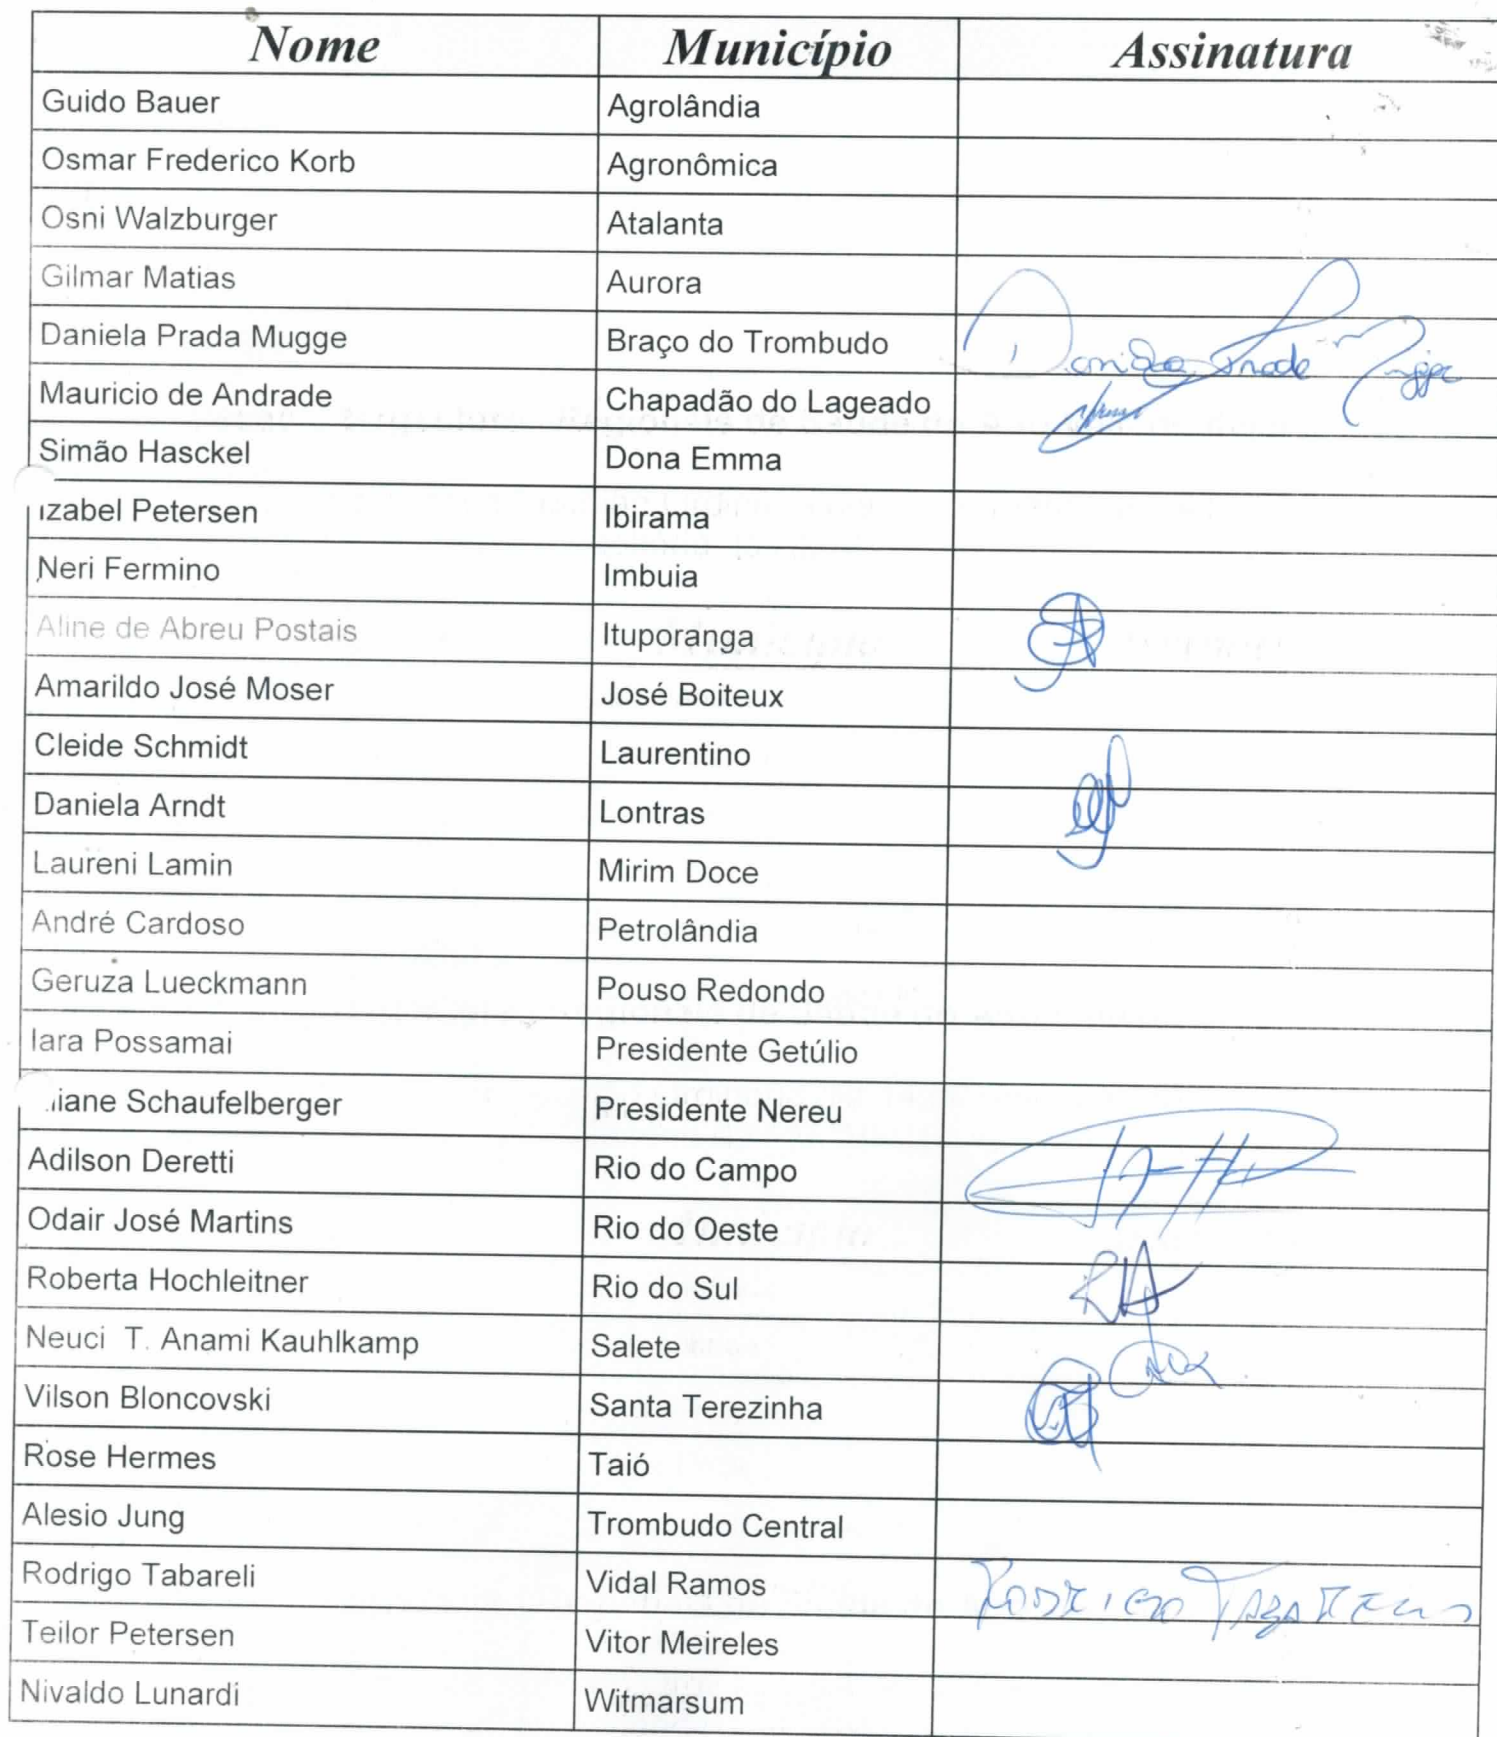 Nome Município Assinatura
Guido Bauer Agrolândia
Osmar Frederico Korb Agronômica
Osni Walzburger Atalanta
Gilmar Matias Aurora
Daniela Prada Mugge Braço do Trombudo Daniela Prade Mugge
Mauricio de Andrade Chapadão do Lageado
Simão Hasckel Dona Emma
Izabel Petersen Ibirama
Neri Fermino Imbuia
Aline de Abreu Postais Ituporanga
Amarildo José Moser José Boiteux
Cleide Schmidt Laurentino
Daniela Arndt Lontras
Laureni Lamin Mirim Doce
André Cardoso Petrolândia
Geruza Lueckmann Pouso Redondo
Iara Possamai Presidente Getúlio
Schaufelberger Presidente Nereu
Adilson Deretti Rio do Campo
Odair José Martins Rio do Oeste
Roberta Hochleitner Rio do Sul RH
Neuci T. Anami Kauhlkamp Salete
Vilson Bloncovski Santa Terezinha
Rose Hermes Taió
Alesio Jung Trombudo Central
Rodrigo Tabareli Vidal Ramos Rodrigo Tabareli
Teilor Petersen Vitor Meireles
Nivaldo Lunardi Witmarsum